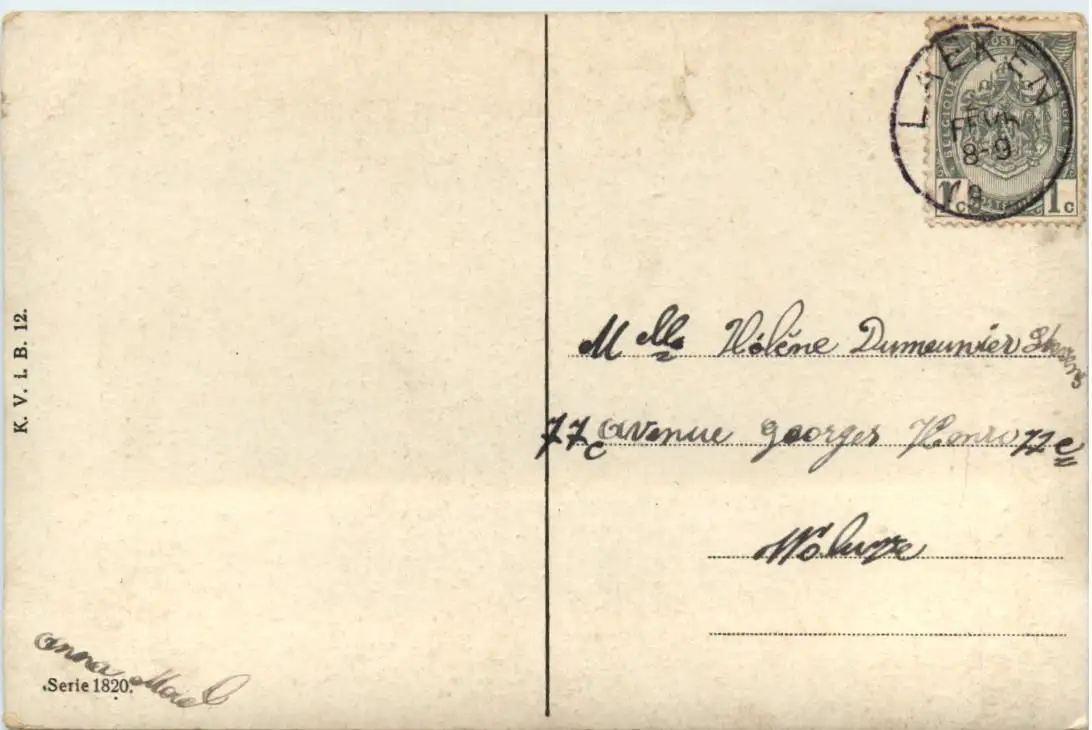 LAEKEN
FEVR
8-9
BELGIQUE
1c 1c
Melle Hélène Dumeunier
77c avenue Georges Henri 77e
Woluwe
K. V. i. B. 12.
Anna
Serie 1820.